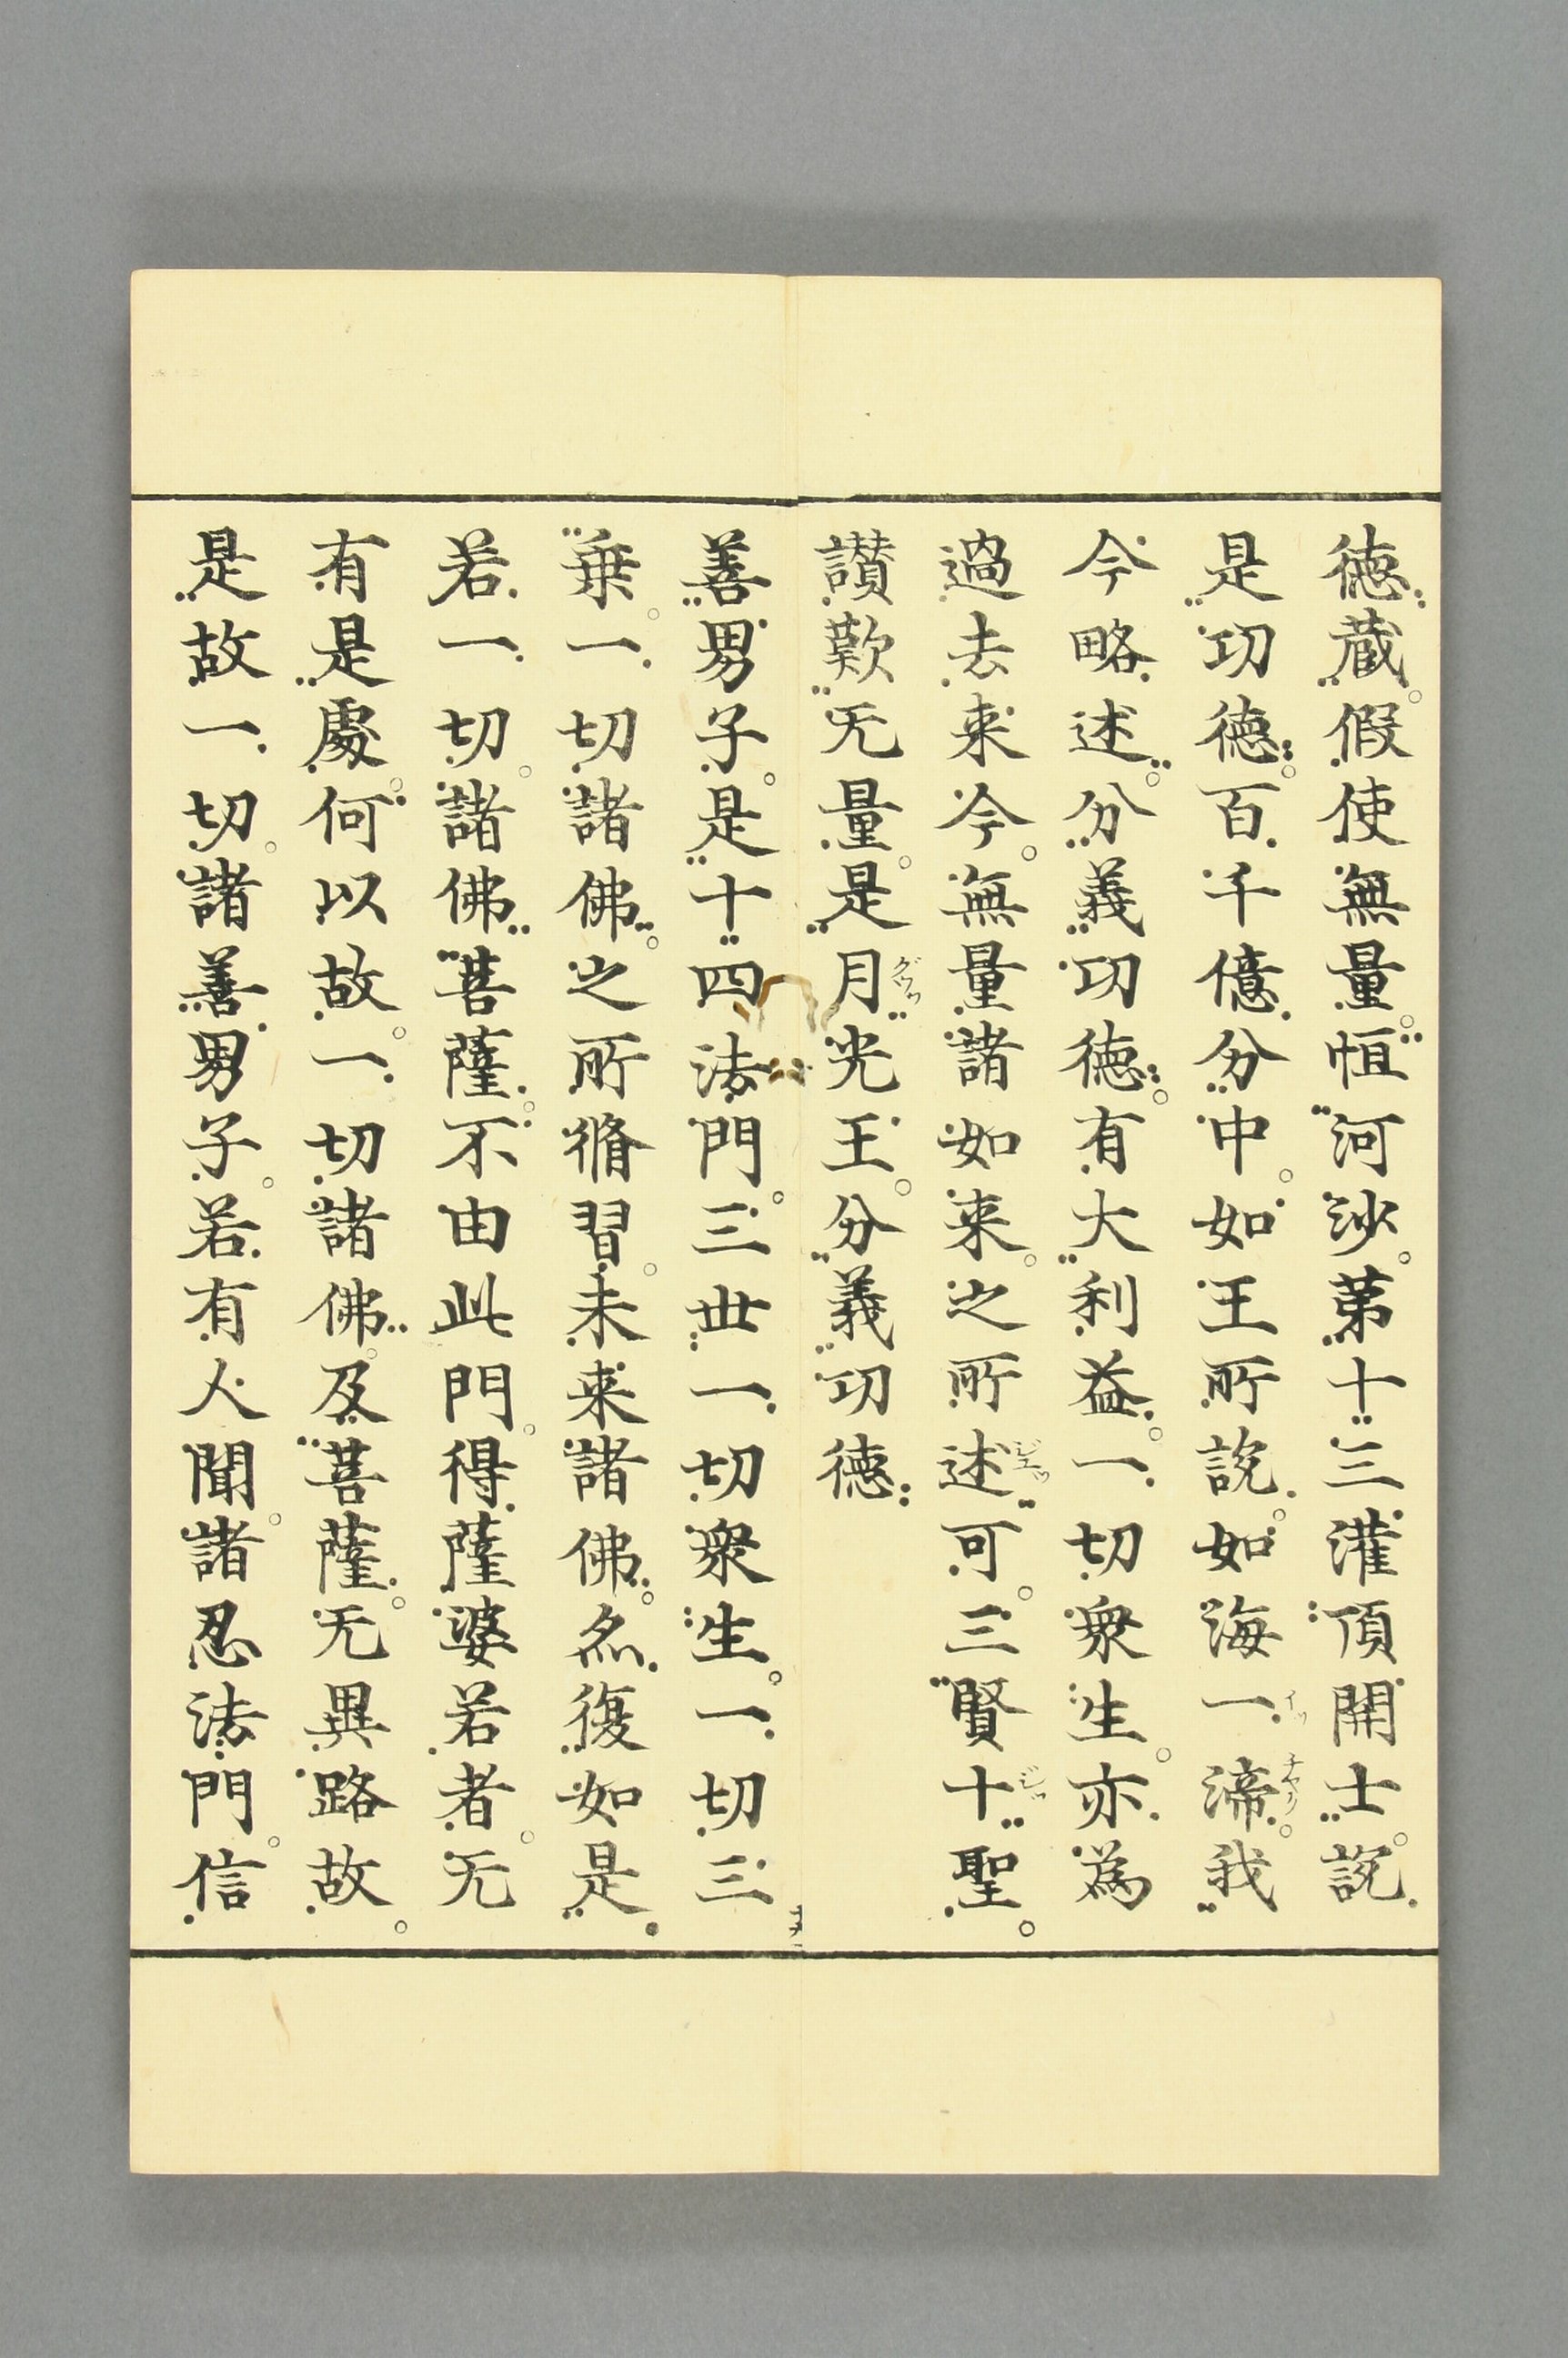 徳蔵假使無量恒河沙第十三灌頂開士説
是功徳百千億分中如王所説如海一渧我
今略述分義功徳有大利益一切衆生亦為
過去来今無量諸如来之所述可三賢十聖
讃歎无量是月光王分義功徳
善男子是十四法門三世一切衆生一切三
乗一切諸佛之所脩習未来諸佛亦復如是
若一切諸佛菩薩不由此門得薩婆若者无
有是處何以故一切諸佛及菩薩无異路故
是故一切諸善男子若有人聞諸忍法門信